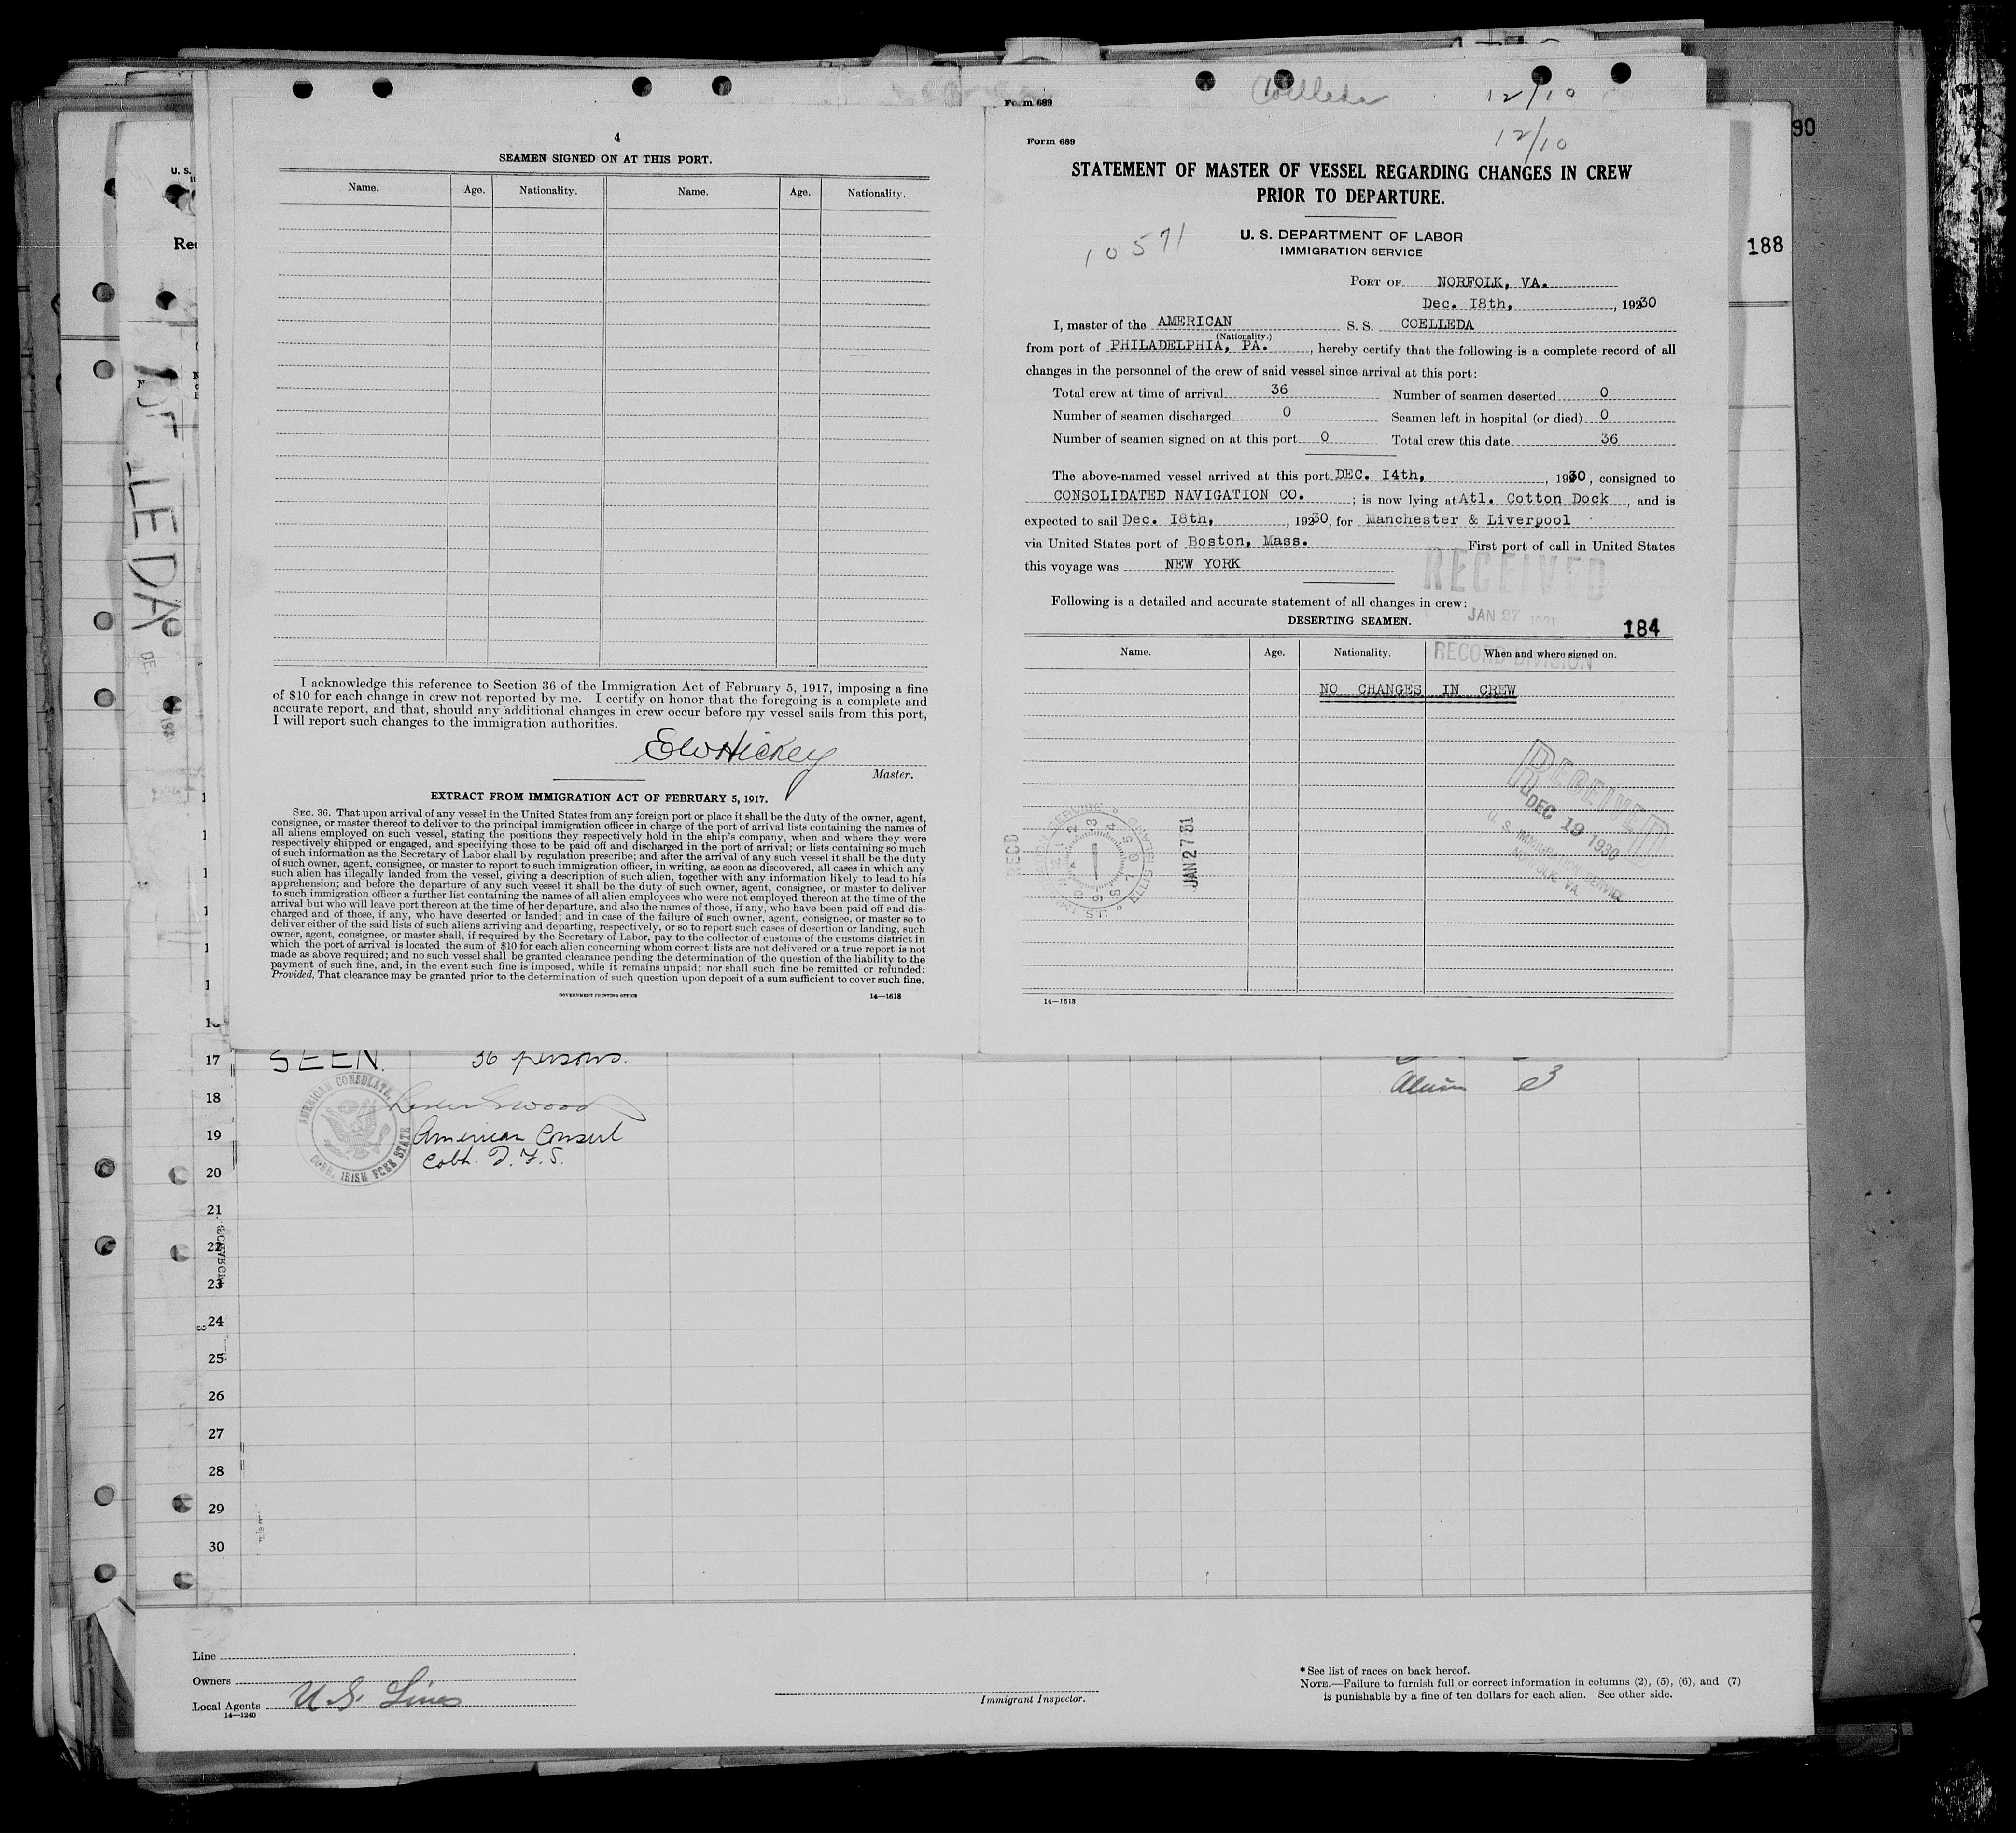 4
SEAMEN SIGNED ON AT THIS PORT.
Name. Age. Nationality. Name. Age. Nationality.
I acknowledge this reference to Section 36 of the Immigration Act of February 5, 1917, imposing a fine
of $10 for each change in crew not reported by me. I certify on honor that the foregoing is a complete and
accurate report, and that, should any additional changes in crew occur before my vessel sails from this port,
I will report such changes to the immigration authorities.
E W Hickey
Master.
EXTRACT FROM IMMIGRATION ACT OF FEBRUARY 5, 1917.
SEC. 36. That upon arrival of any vessel in the United States from any foreign port or place it shall be the duty of the owner, agent,
consignee, or master thereof to deliver to the principal immigration officer in charge of the port of arrival lists containing the names of
all aliens employed on such vessel, stating the positions they respectively hold in the ship's company, when and where they were
respectively shipped or engaged, and specifying those to be paid off and discharged in the port of arrival; or lists containing so much
of such information as the Secretary of Labor shall by regulation prescribe; and after the arrival of any such vessel it shall be the duty
of such owner, agent, consignee, or master to report to such immigration officer, in writing, as soon as discovered, all cases in which any
such alien has illegally landed from the vessel, giving a description of such alien, together with any information likely to lead to his
apprehension; and before the departure of any such vessel it shall be the duty of such owner, agent, consignee, or master to deliver
to such immigration officer a further list containing the names of all alien employees who were not employed thereon at the time of the
arrival but who will leave port thereon at the time of her departure, and also the names of those, if any, who have been paid off and dis-
charged and of those, if any, who have deserted or landed; and in case of the failure of such owner, agent, consignee, or master so to
deliver either of the said lists of such aliens arriving and departing, respectively, or so to report such cases of desertion or landing, such
owner, agent, consignee, or master shall, if required by the Secretary of Labor, pay to the collector of customs of the customs district in
which the port of arrival is located the sum of $10 for each alien concerning whom correct lists are not delivered or a true report is not
made as above required; and no such vessel shall be granted clearance pending the determination of the question of the liability to the
payment of such fine, and, in the event such fine is imposed, while it remains unpaid; nor shall such fine be remitted or refunded:
Provided, That clearance may be granted prior to the determination of such question upon deposit of a sum sufficient to cover such fine.
GOVERNMENT PRINTING OFFICE 14—1618
Form 689 Coelleda 12/10
Form 689 12/10
STATEMENT OF MASTER OF VESSEL REGARDING CHANGES IN CREW
PRIOR TO DEPARTURE.
10571
U. S. DEPARTMENT OF LABOR
IMMIGRATION SERVICE
PORT OF NORFOLK, VA.
Dec. 18th, , 19230
I, master of the AMERICAN S. S. COELLEDA
(Nationality.)
from port of PHILADELPHIA, PA. , hereby certify that the following is a complete record of all
changes in the personnel of the crew of said vessel since arrival at this port:
Total crew at time of arrival 36 Number of seamen deserted 0
Number of seamen discharged 0 Seamen left in hospital (or died) 0
Number of seamen signed on at this port 0 Total crew this date 36
The above-named vessel arrived at this port DEC. 14th, , 1930, consigned to
CONSOLIDATED NAVIGATION CO. ; is now lying at Atl. Cotton Dock , and is
expected to sail Dec. 18th, , 19230, for Manchester & Liverpool
via United States port of Boston, Mass. First port of call in United States
this voyage was NEW YORK
RECEIVED
JAN 27 1931
RECORD DIVISION
Following is a detailed and accurate statement of all changes in crew:
DESERTING SEAMEN. 184
Name. Age. Nationality. When and where signed on.
NO CHANGES IN CREW
RECEIVED
DEC 19 1930
U. S. IMMIGRATION SERVICE
NORFOLK, VA.
RECD
ELLIS ISLAND
JAN 27 31
14—1618
90
188
U. S.
Rec
LEDA
SEEN. 36 persons.
AMERICAN CONSULATE,
COBH, IRISH FREE STATE
American Consul
Cobh. I. F. S.
17
18
19
20
21
22
23
24
25
26
27
28
29
30
Line
Owners
Local Agents U.S. Lines
14—1240
Immigrant Inspector.
* See list of races on back hereof.
NOTE.—Failure to furnish full or correct information in columns (2), (5), (6), and (7)
is punishable by a fine of ten dollars for each alien. See other side.